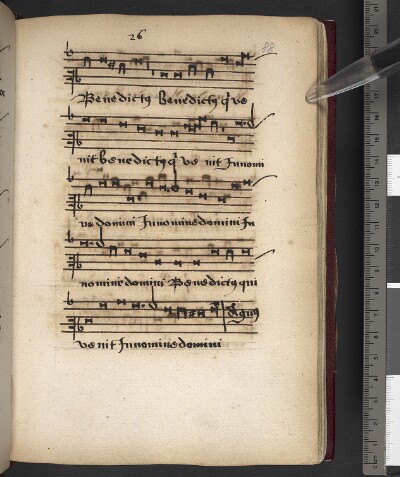 26
88
Benedictus benedictus qui ve
nit benedictus qui ve nit In nomi
ne domini In nomine domini In
nomine domini Benedictus qui
Agnus
ve nit In nomine domini